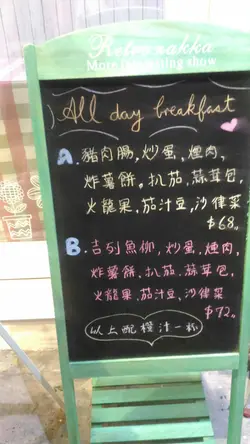 Retro zakka
More interesting show
All day breakfast
A. 豬肉腸,炒蛋,煙肉,
炸薯餅,扒茄,蒜茸包,
火龍果,茄汁豆,沙律菜
$68
B. 吉列魚柳,炒蛋,煙肉,
炸薯餅,扒茄,蒜茸包,
火龍果,茄汁豆,沙律菜
$72
以上配橙汁一杯